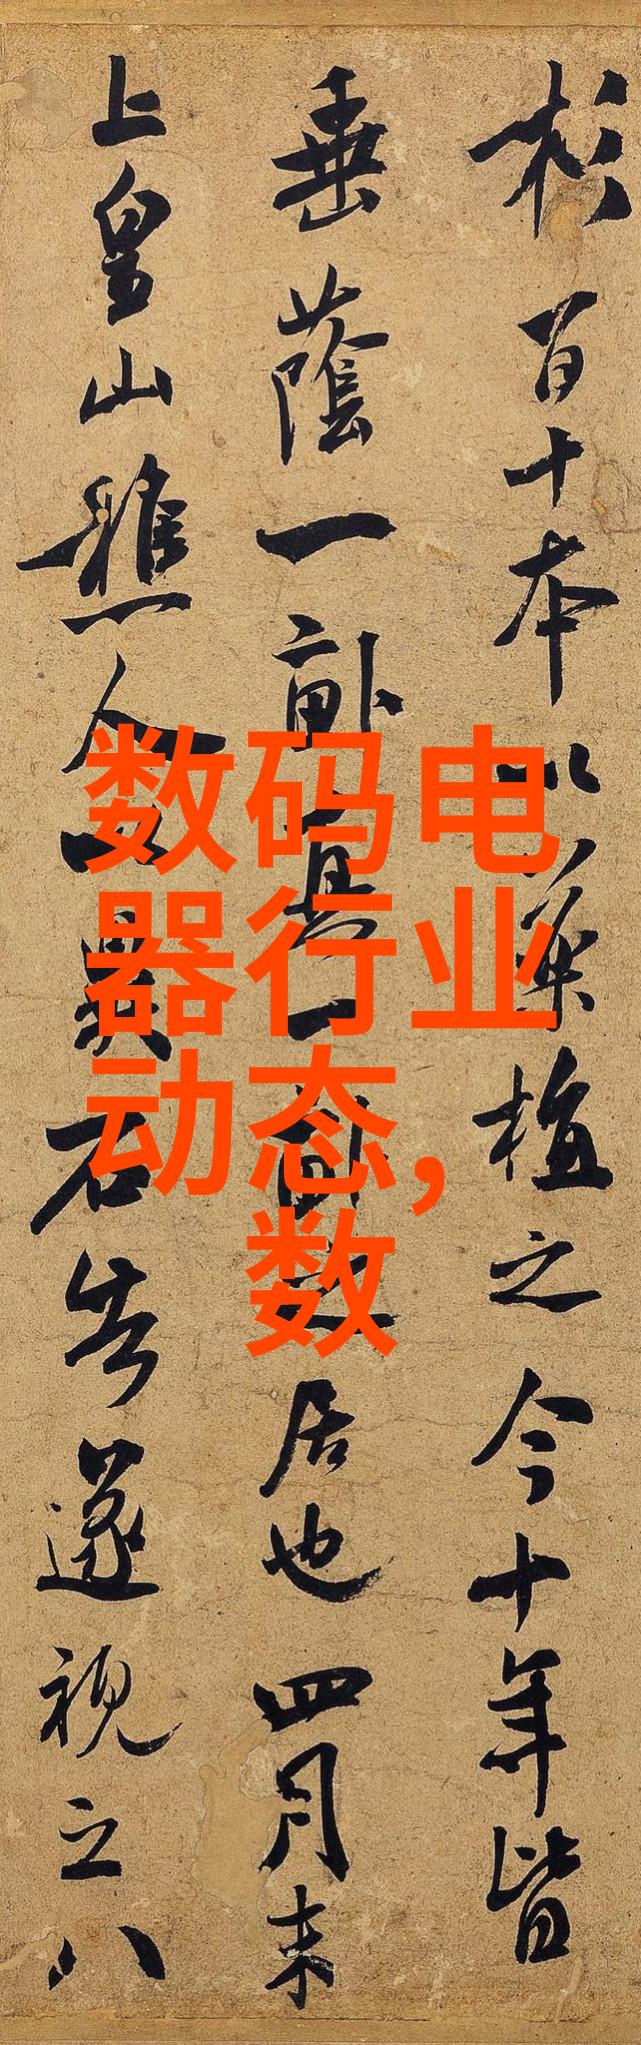 杉百十本以藥植之今十年皆
垂蔭一畝真一畝之居也四月末
上皇山樵人以異石告遂視之八
数码电
器行业
动态，
数